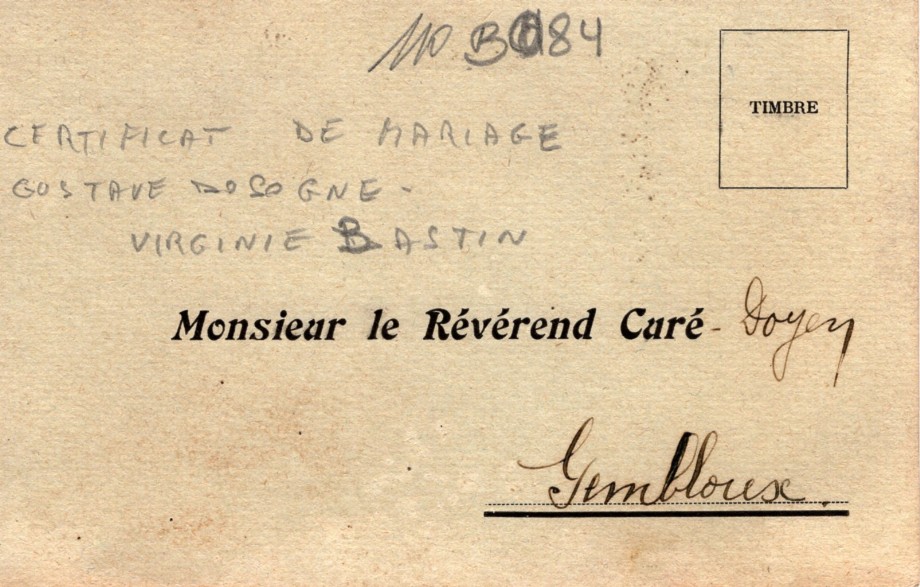 B 84
TIMBRE
CERTIFICAT DE MARIAGE
GUSTAVE DOSOGNE -
VIRGINIE BASTIN
Monsieur le Révérend Curé - Doyen
Gembloux.